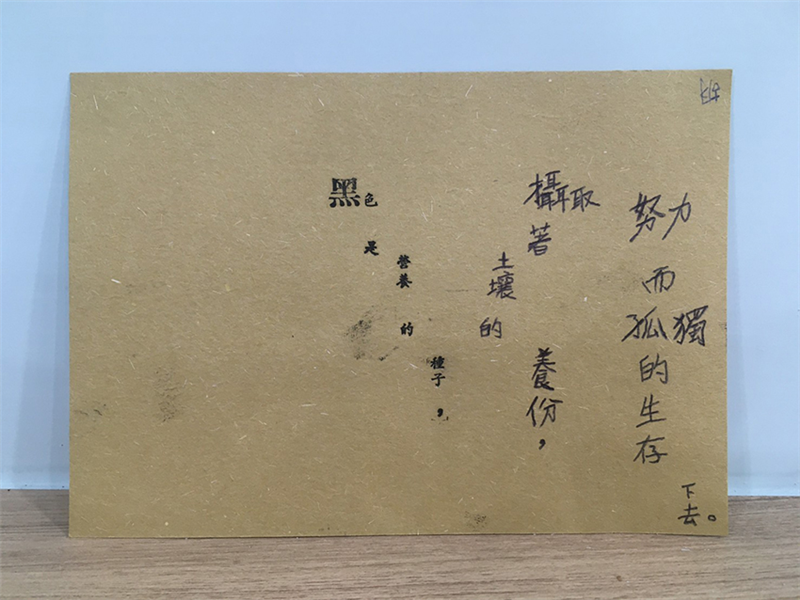 黑色
是
營養
的
種子，
攝取
著
土壤
的
養份，
努力
而
孤獨
的
生存
下去。